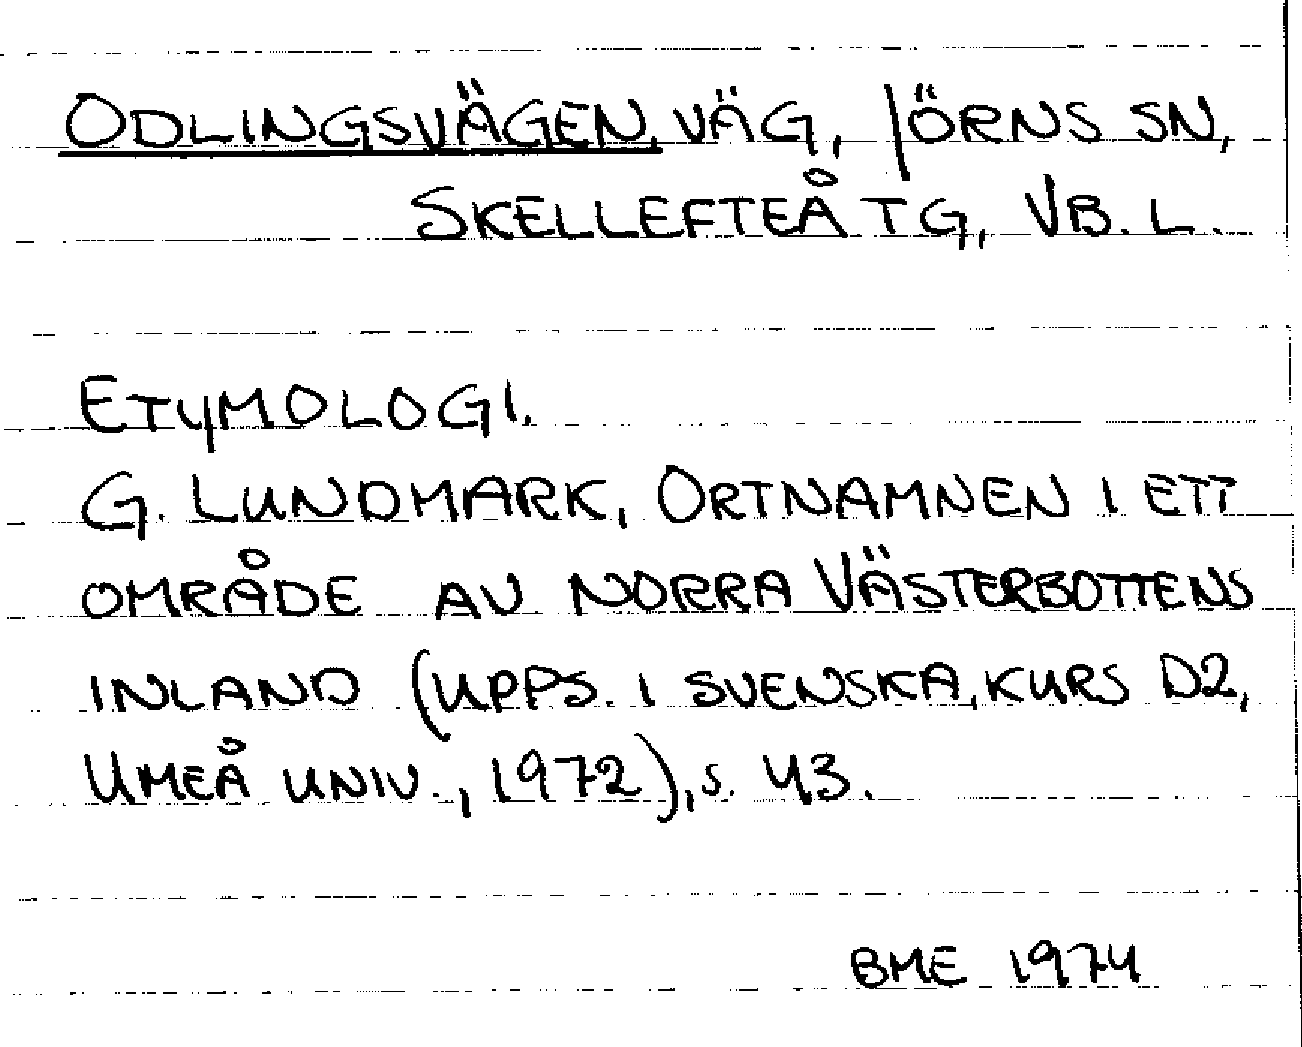 ODLINGSVÄGEN, VÄG, JÖRNS SN,
SKELLEFTEÅ TG, VB. L.
ETYMOLOGI.
G. LUNDMARK, ORTNAMNEN I ETT
OMRÅDE AV NORRA VÄSTERBOTTENS
INLAND (UPPS. I SVENSKA, KURS D2,
UMEÅ UNIV., 1972), s. 43.
BME 1974